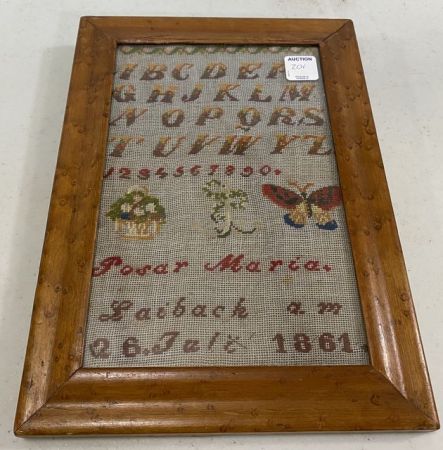 AUCTION
201
ABCDEF
GHIJKLM
NOPQRS
TUVWXYZ
1234567890.
Posar Maria.
Laibach am
26. Juli 1861.